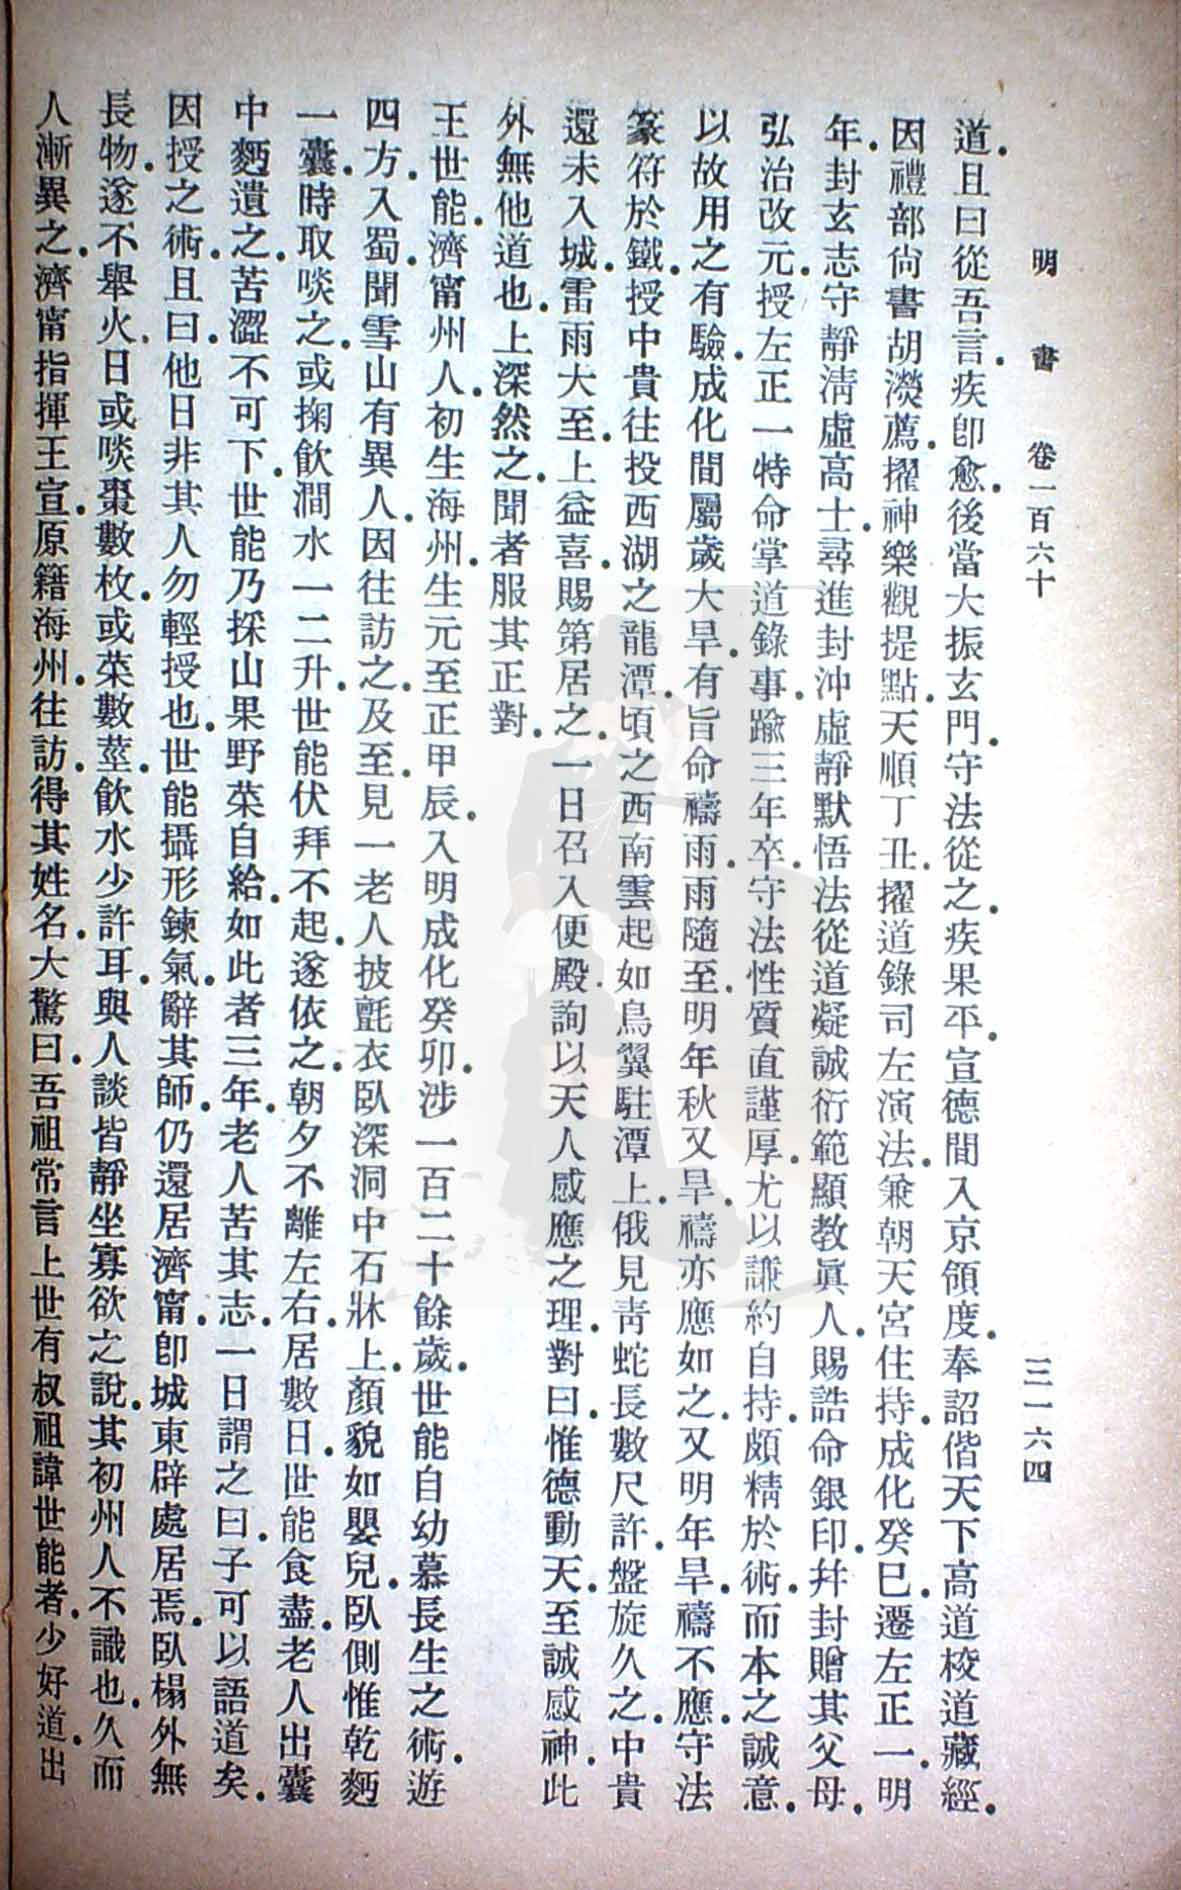 明書 卷一百六十 三一六四
道.且曰從吾言.疾卽愈.後當大振玄門.守法從之.疾果平.宣德間入京領度.奉詔偕天下高道校道藏經.
因禮部尚書胡濙薦.擢神樂觀提點.天順丁丑.擢道錄司左演法.兼朝天宮住持.成化癸巳.遷左正一.明
年.封玄志守靜淸虛高士.尋進封沖虛靜默悟法從道凝誠衍範顯敎眞人.賜誥命銀印.幷封贈其父母.
弘治改元.授左正一.特命掌道錄事.踰三年卒.守法性質直謹厚.尤以謙約自持.頗精於術.而本之誠意.
以故用之有驗.成化間屬歲大旱.有旨命禱雨.雨隨至.明年秋又旱.禱亦應如之.又明年旱.禱不應.守法
篆符於鐵.授中貴往投西湖之龍潭.頃之西南雲起如鳥翼駐潭上.俄見靑蛇長數尺許.盤旋久之.中貴
還未入城.雷雨大至.上益喜.賜第居之.一日召入便殿.詢以天人感應之理.對曰.惟德動天.至誠感神.此
外無他道也.上深然之.聞者服其正對.
王世能.濟甯州人.初生海州.生元至正甲辰.入明成化癸卯.涉一百二十餘歲.世能自幼慕長生之術.遊
四方.入蜀.聞雪山有異人.因往訪之.及至.見一老人披氈衣臥深洞中石牀上.顏貌如嬰兒.臥側惟乾麪
一囊.時取啖之.或掬飮澗水一二升.世能伏拜不起.遂依之.朝夕不離左右.居數日.世能食盡.老人出囊
中麪遺之.苦澀不可下.世能乃採山果野菜自給.如此者三年.老人苦其志.一日謂之曰.子可以語道矣.
因授之術.且曰.他日非其人勿輕授也.世能攝形鍊氣.辭其師.仍還居濟甯.卽城東辟處居焉.臥榻外無
長物.遂不舉火.日或啖棗數枚.或菜數莖.飮水少許耳.與人談皆靜坐寡欲之說.其初州人不識也.久而
人漸異之.濟甯指揮王宣.原籍海州.往訪.得其姓名.大驚曰.吾祖常言上世有叔祖諱世能者.少好道.出